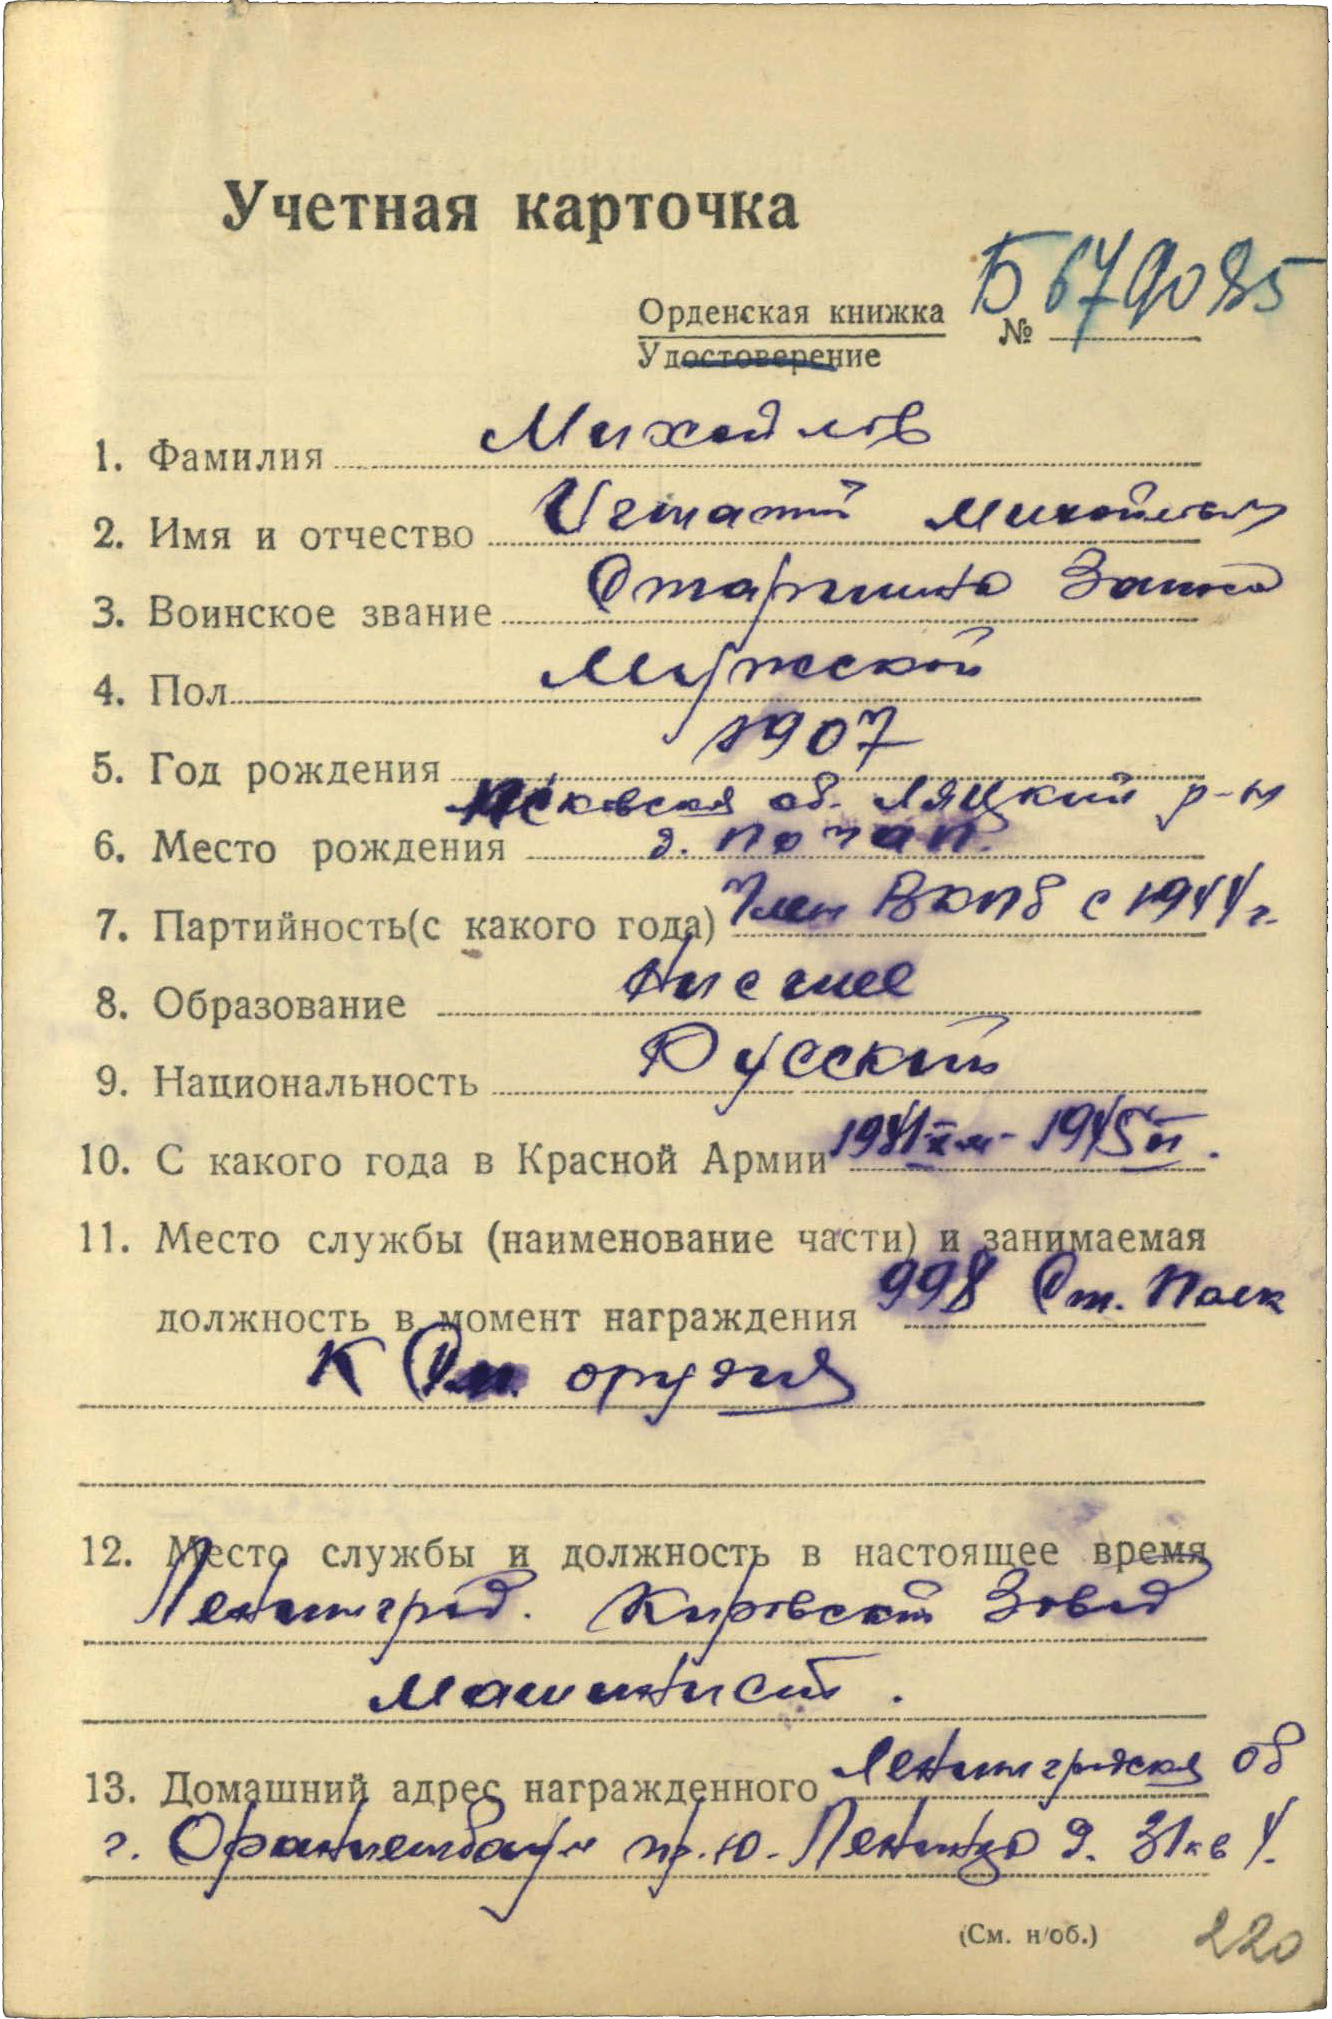 Учетная карточка
Орденская книжка
Удостоверение
№ Б 679085
1. Фамилия Михайлов
2. Имя и отчество Игнатий Михайлович
3. Воинское звание Старшина Запаса
4. Пол Мужской
5. Год рождения 1907
Псковская об. Ляцкий р-н
6. Место рождения д.
7. Партийность (с какого года) Член ВКПб с 1944 г.
8. Образование Низшее
9. Национальность Русский
10. С какого года в Красной Армии 1941 - 1945
11. Место службы (наименование части) и занимаемая
должность в момент награждения 998 Ст. Полк
К орудия
12. Место службы и должность в настоящее время
Ленинград. Кировский Завод
машинист.
13. Домашний адрес награжденного Ленинградская об
г. Ораниенбаум пр. Ю. Ленинца д. 31 кв 4.
(См. н/об.)
220